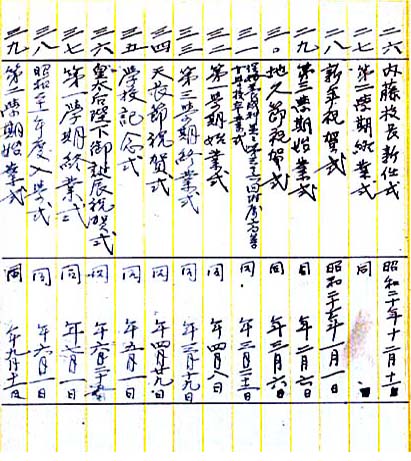 二六 内藤校長新任式 昭和二十年十二月十一日
二七 第二學期終業式 同
二八 新年祝賀式 昭和二十一年一月一日
二九 第三學期始業式 同 月六日
三〇 地久節祝賀式 同 年三月六日
三一 卒業式 同 年三月
三二 學期始業式 同 年四月八日
三三 第三學期終業式 同 年三月十九日
三四 天長節祝賀式 同 年四月廿九日
三五 學校記念式 同 年五月一日
三六 皇太后陛下御誕辰祝賀式 同 年六月二十五日
三七 第一學期終業式 同
三八 昭和二十一年度入學式 同 年六月一日
三九 第二學期始業式 同 年九月十一日